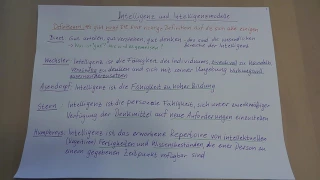 Intelligenz und Intelligenzmodelle
Definitionen: Es gibt
Binet: gut urteilen, gut verstehen, gut denken, das sind die wesentlichen
Bereiche der Intelligenz
Wechsler: Intelligenz ist die Fähigkeit des Individuums, zweckvoll zu handeln,
vernünftig zu denken und sich mit seiner Umgebung wirkungsvoll
auseinanderzusetzen
Intelligenz ist die Fähigkeit zu hoher Bildung
Stern: Intelligenz ist die personale Fähigkeit, sich unter zweckmäßiger
Verfügung der Denkmittel auf neue Anforderungen einzustellen
Intelligenz ist das erworbene Repertoire von intellektuellen
(kognitiven) Fertigkeiten und Wissensbeständen, die einer Person zu
einem gegebenen Zeitpunkt verfügbar sind